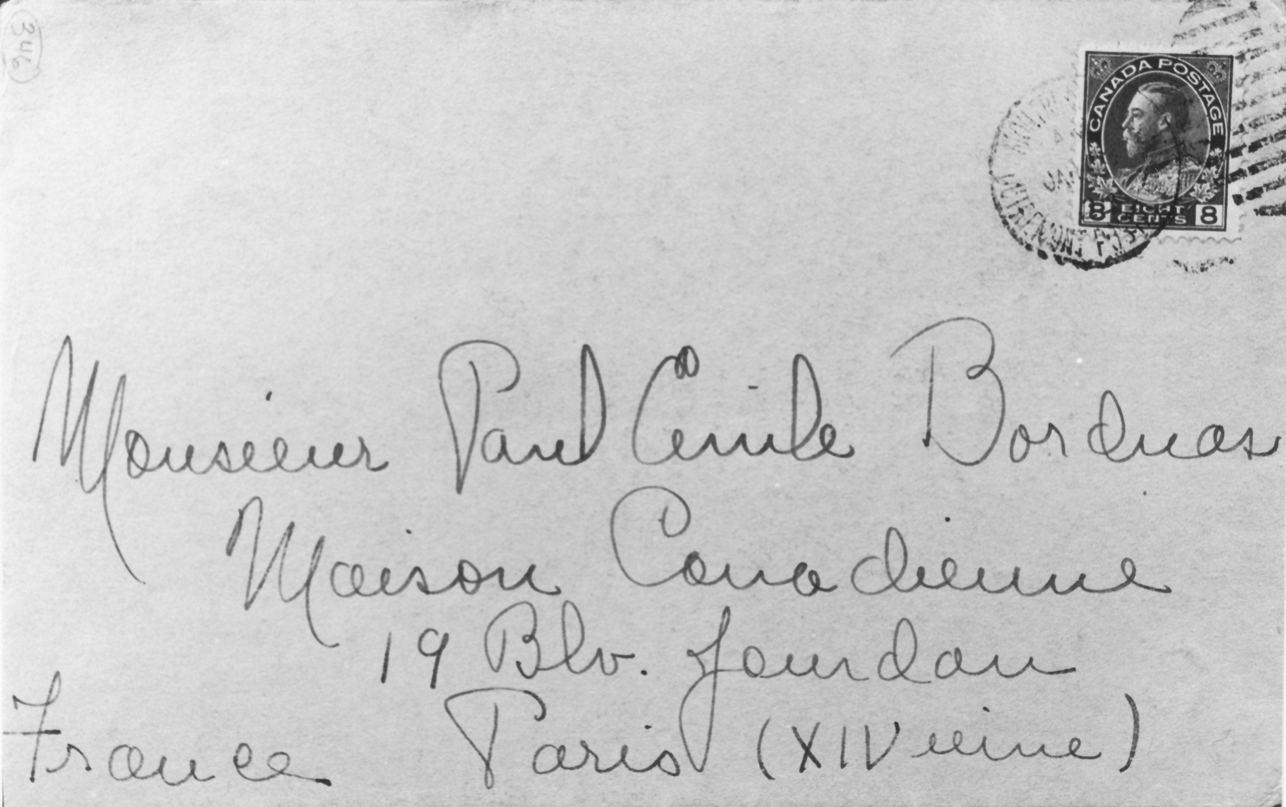 346
CANADA POSTAGE
8 EIGHT CENTS 8
Monsieur Paul Émile Borduas
Maison Canadienne
19 Blv. Jourdan
France Paris (XIV ieme)